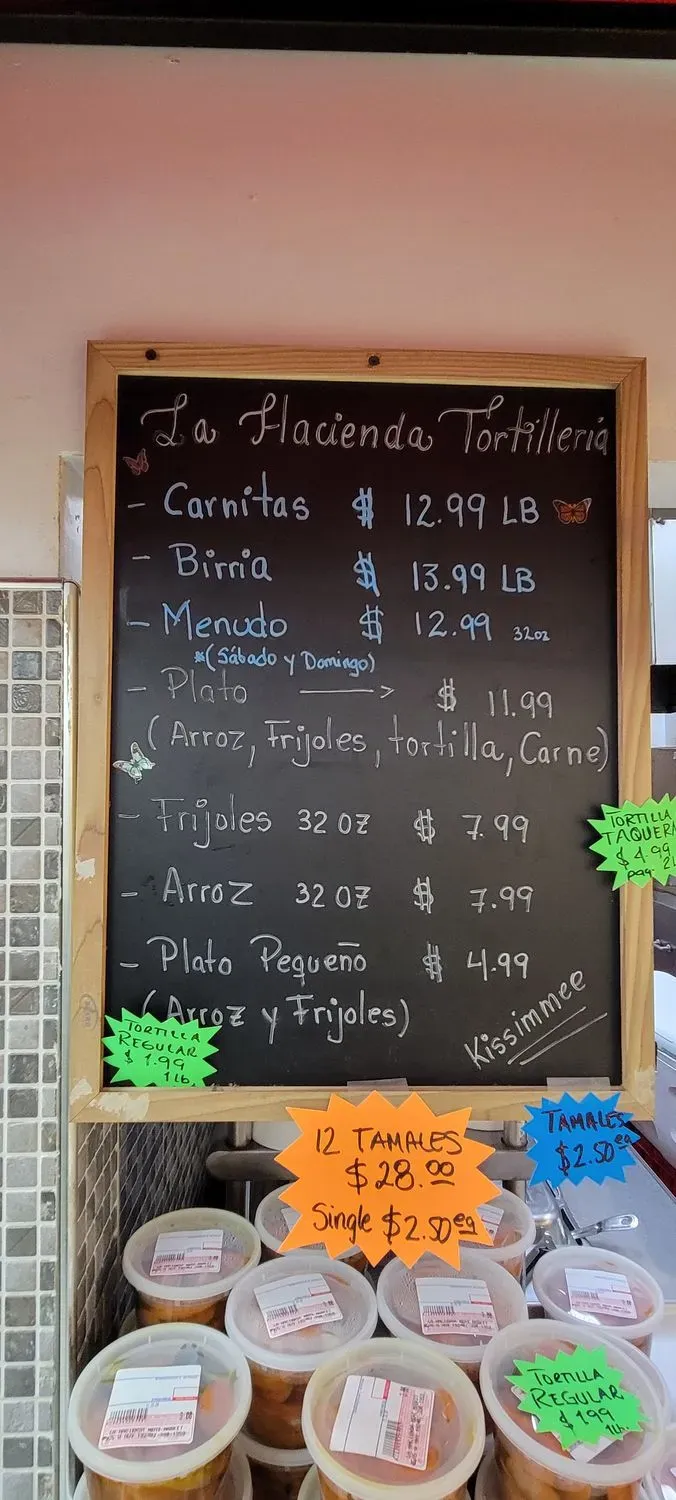 La Hacienda Tortilleria
- Carnitas $ 12.99 LB
- Birria $ 13.99 LB
- Menudo $ 12.99 32oz
*(Sábado y Domingo)
- Plato → $ 11.99
(Arroz, Frijoles, tortilla, Carne)
- Frijoles 32 OZ $ 7.99
- Arroz 32 OZ $ 7.99
- Plato Pequeño $ 4.99
(Arroz y Frijoles)
Kissimmee
TORTILLA
TAQUER
$ 4.99
TORTILLA
REGULAR
$ 1.99
1 Lb.
12 TAMALES
$28.00
Single $2.50 ea
TAMALES
$2.50 ea
TORTILLA
REGULAR
$ 1.99
1 Lb.